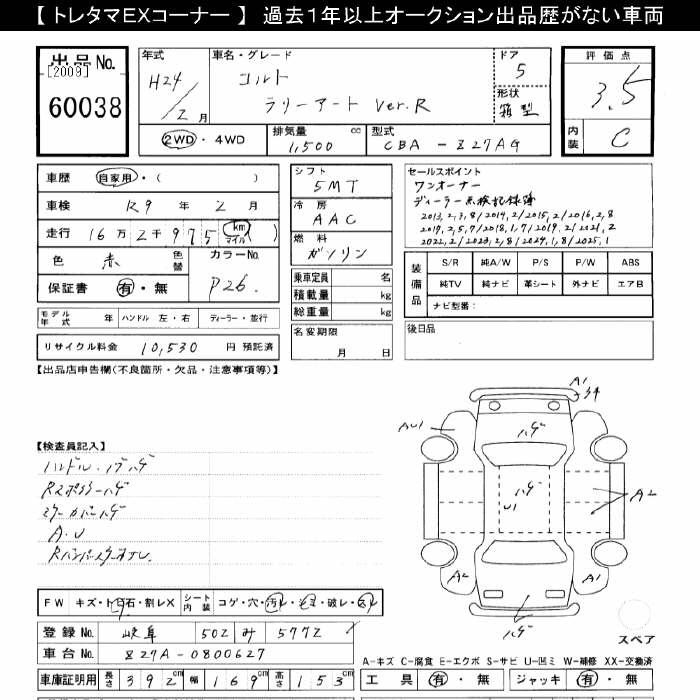 【 トレタマEXコーナー 】 過去1年以上オークション出品歴がない車両
出品 No.
[2009]
60038
年式
H24 / 2 月
車名・グレード
コルト
ラリーアート Ver.R
ドア
5
形状
箱型
評価点
3.5
内装
C
2WD・4WD
排気量 1,500 cc
型式 CBA - Z27AG
車歴 自家用・( )
車検 R9 年 2 月
走行 16 万 2 千 975 km マイル )
色 赤 色替
カラーNo.
P26
保証書 有・無
モデル年式 年 ハンドル 左・右 ディーラー・並行
リサイクル料金 10,530 円 預託済
シフト
5MT
冷房
AAC
燃料
ガソリン
乗車定員 名
積載量 kg
総重量 kg
名変期限
月 日
セールスポイント
ワンオーナー
ディーラー点検記録簿
2013,2,3,8/2014,2/2015,2/2016,2,8
2017,2,5,7/2018,1,7/2019,2/2021,2
2022,2/2023,2,8/2024,1,8/2025,1
装備品
S/R 純A/W P/S P/W ABS
純TV 純ナビ 革シート 外ナビ エアB
ナビ型番:
後日品
【出品店申告欄(不良箇所・欠品・注意事項等)】
【検査員記入】
ハンドル・ノブハゲ
Rスポイラーハゲ
ミラーカバーハゲ
A.U
A1
AU1
ハゲ
ハゲ
U1
A2
A2
A1
ハゲ
スペア
FW キズ・トビ石・割レX
シート内装 コゲ・穴・汚レ・シミ・破レ・スレ
登録 No. 岐阜 502 み 5772
車台 No. Z27A-0800627
車庫証明用 長さ 392 cm 幅 169 cm 高さ 153 cm
A-キズ C-腐食 E-エクボ S-サビ U-凹ミ W-補修 XX-交換済
工具 有・無 ジャッキ 有・無